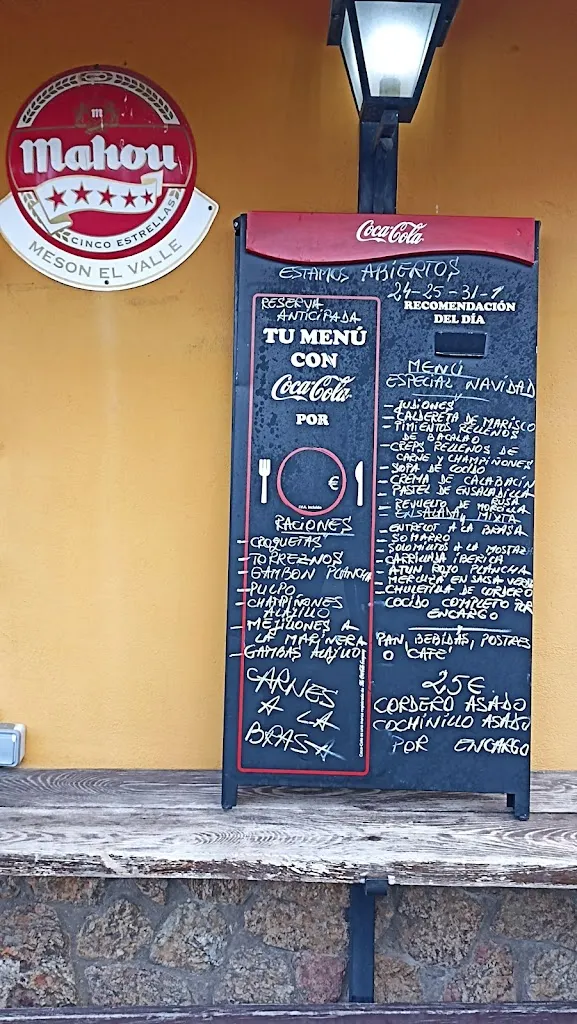 m
Mahou
CINCO ESTRELLAS
MESON EL VALLE
Coca-Cola
ESTAMOS ABIERTOS
24-25-31-1
RESERVA
ANTICIPADA
TU MENÚ
CON
Coca-Cola
POR
€
I.V.A. Incluido
RACIONES
- CROQUETAS
- TORREZNOS
- GAMBON PLANCHA
- PULPO
- CHAMPIÑONES
ALAJILLO
- MEJILLONES A
LA MARINERA
- GAMBAS ALAJILLO
CARNES
A LA
BRASA
RECOMENDACIÓN
DEL DÍA
MENÚ
ESPECIAL NAVIDAD
- JUDIONES
- CALDERETA DE MARISCO
- PIMIENTOS RELLENOS
DE BACALAO
- CREPS RELLENOS DE
CARNE Y CHAMPIÑONES
- SOPA DE COCIDO
- CREMA DE CALABACÍN
- PASTEL DE ENSALADILLA
RUSA
- REVUELTO DE MORCILLA
- ENSALADA MIXTA
- ENTRECOT A LA BRASA
- SOMARRO
- SOLOMILLOS A LA MOSTAZ
- CARRILLADA IBERICA
- ATUN ROJO PLANCHA
- MERLUZA EN SALSA VERDE
- CHULETILLA DE CORDERO
- COCIDO COMPLETO POR
ENCARGO
PAN, BEBIDAS, POSTRES
O CAFÉ
25€
CORDERO ASADO
COCHINILLO ASADO
POR ENCARGO